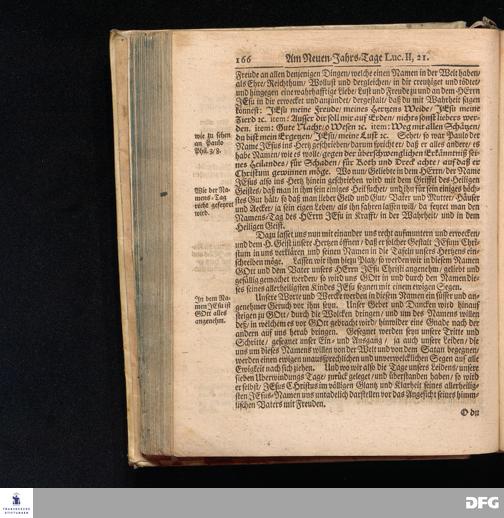 166 Am Neuen-Jahrs-Tage Luc. II, 21.
Freude an allen denjenigen Dingen/ welche einen Namen in der Welt haben/
als Ehre/ Reichthum/ Wollust und dergleichen/ in dir creutziget und tödtet/
und hingegen eine wahrhafftige Liebe/ Lust und Freude zu und an dem HErrn
JEsu in dir erwecket und anzündet/ dergestalt/ daß du mit Wahrheit sagen
könnest: JEsu meine Freude/ meines Hertzens Weide/ JEsu meine
Zierd ꝛc. item: Ausser dir soll mir auf Erden/ nichts sonst liebers wer-
den. item: Gute Nacht/ o Wesen ꝛc. item: Weg mit allen Schätzen/
du bist mein Ergetzen/ JEsu/ meine Lust ꝛc. Sehet/ so war Paulo der
wie zu sehen
an Paulo
Phil. 3/8.
Name JEsus ins Hertz geschrieben/ darum spricht er/ daß er alles andere/ es
habe Namen/ wie es wolle/ gegen der überschwenglichen Erkänntniß sei-
nes Heilandes/ für Schaden/ für Koth und Dreck achte/ auf daß er
Christum gewinnen möge. Wo nun/ Geliebte in dem HErrn/ der Name
JEsus also ins Hertz hinein geschrieben wird mit dem Griffel des Heiligen
Geistes/ daß man in ihm sein einiges Heil suchet/ und ihn für sein einiges höch-
Wie der Na-
mens-Tag
recht gefeyret
wird.
stes Gut hält/ so daß man lieber Geld und Gut/ Vater und Mutter/ Häuser
und Aecker/ ja sein eigen Leben/ als ihn fahren lassen will/ da feyret man den
Namens-Tag des HErrn JEsu in Krafft/ in der Wahrheit/ und in dem
Heiligen Geist.
Dazu lasset uns nun mit einander uns recht aufmuntern und erwecken/
und dem H. Geist unsere Hertzen öffnen/ daß er solcher Gestalt JEsum Chri-
stum in uns verklären und seinen Namen in die Tafeln unsers Hertzens ein-
schreiben möge. Lassen wir ihm hiezu Platz/ so werden wir in diesem Namen
GOtt und dem Vater unsers HErrn JEsu Christi angenehm/ geliebt und
gefällig gemachet werden/ so wird uns GOtt in und durch den Namen die-
ses seines allerheiligsten Kindes JEsu segnen mit einem ewigen Segen.
In dem Na-
men JEsu ist
GOtt alles
angenehm.
Unsere Worte und Wercke werden in diesem Namen ein süsser und an-
genehmer Geruch vor ihm seyn. Unser Gebet und Dancken wird hinauf
steigen zu GOtt/ durch die Wolcken dringen/ und um des Namens willen
deß/ in welchem es vor GOtt gebracht wird/ hinwider eine Gnade nach der
andern auf uns herab bringen. Gesegnet werden seyn unsere Tritte und
Schritte/ gesegnet unser Ein- und Ausgang/ ja auch unsere Leiden/ die
uns um dieses Namens willen von der Welt und von dem Satan begegnen/
werden einen ewigen unaussprechlichen und unverwelcklichen Segen auf alle
Ewigkeit nach sich ziehen. Und wo wir also die Tage unsers Leidens/ unsere
sieben Uberwindungs-Tage/ zurück geleget/ und überstanden haben/ so wird
er selbst/ JEsus Christus im völligen Glantz und Klarheit seines allerheilig-
sten JEsus-Namen uns untadelich darstellen vor das Angesicht seines himm-
lischen Vaters mit Freuden.
O du
FRANCKESCHE
STIFTUNGEN
DFG